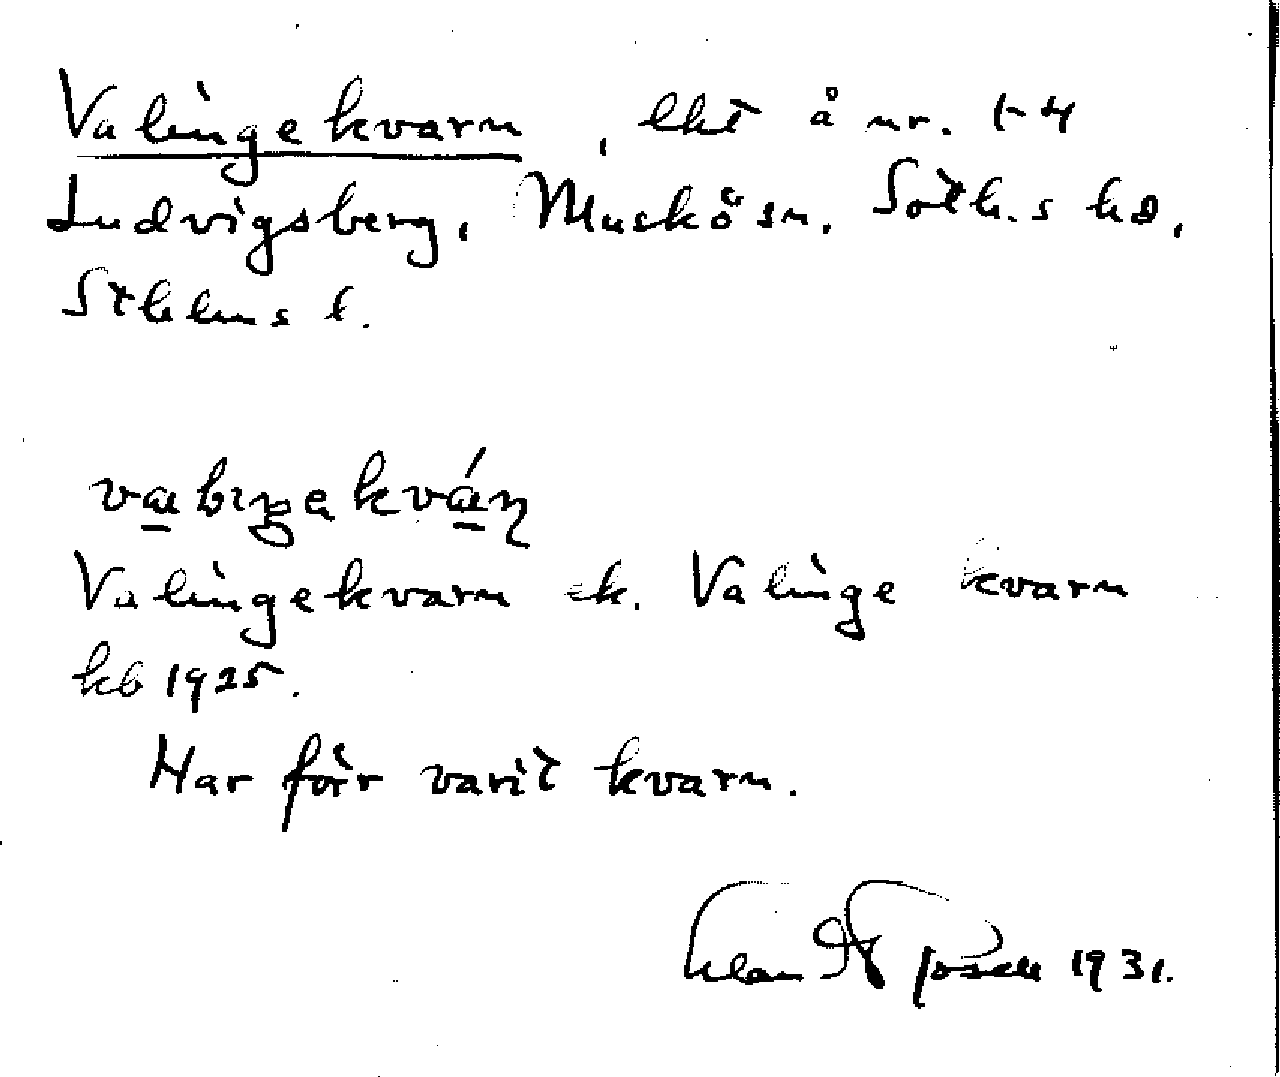 Valingekvarn, lht å nr. 1-4
Ludvigsberg, Muskö sn. Soth.s hd,
Sthlms l.
Valingekvarn ek. Valinge kvarn
kb 1925.
Har förr varit kvarn.
1931.